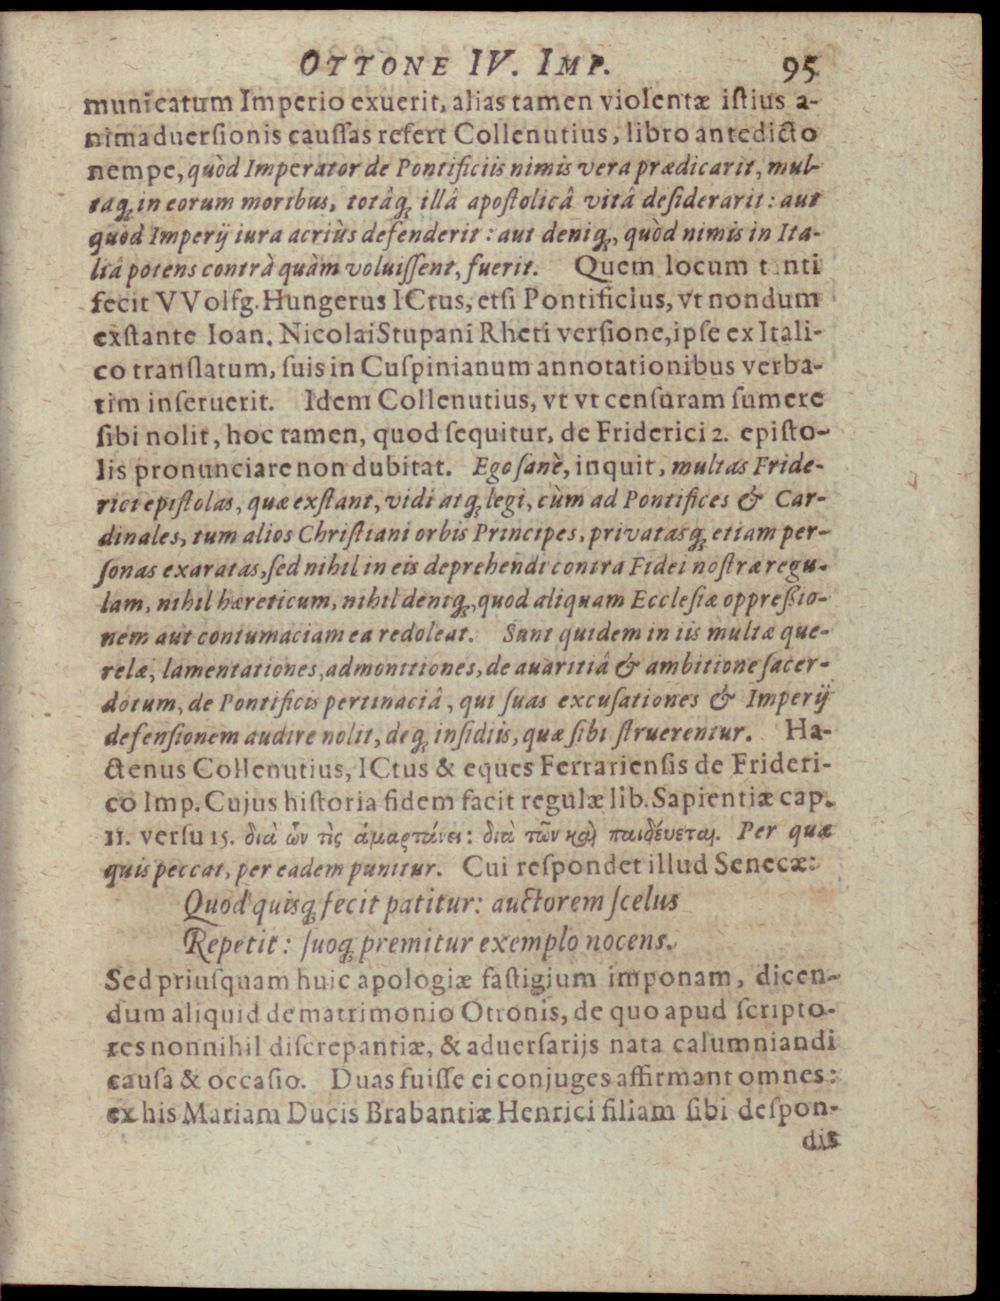 OTTONE IV. IMP. 95
municatum Imperio exuerit, alias tamen violentæ iſtius a-
nimaduerſionis cauſſas refert Collenutius, libro antedicto
nempe, quòd Imperator de Pontificiis nimis vera prædicarit, mul-
taq; in eorum moribus, totâq; illâ apoſtolicâ vitâ deſiderarit: aut
quod Imperij iura acriùs defenderit: aut deniq;, quòd nimis in Ita-
liâ potens contrà quàm voluiſſent, fuerit. Quem locum tanti
fecit VVolfg. Hungerus ICtus, etſi Pontificius, vt nondum
exſtante Ioan. Nicolai Stupani Rheti verſione, ipſe ex Itali-
co tranſlatum, ſuis in Cuſpinianum annotationibus verba-
tim inſeruerit. Idem Collenutius, vt vt cenſuram ſumere
ſibi nolit, hoc tamen, quod ſequitur, de Friderici 2. epiſto-
lis pronunciare non dubitat. Ego ſanè, inquit, multas Fride-
rici epiſtolas, quæ exſtant, vidi atq; legi, cùm ad Pontifices & Car-
dinales, tum alios Chriſtiani orbis Principes, privatasq; etiam per-
ſonas exaratas, ſed nihil in eis deprehendi contra Fidei noſtræ regu-
lam, nihil hæreticum, nihil deniq;, quod aliquam Eccleſiæ oppreſſio-
nem aut contumaciam ea redoleat. Sunt quidem in iis multæ que-
relæ, lamentationes, admonitiones, de auaritiâ & ambitione ſacer-
dotum, de Pontificis pertinaciâ, qui ſuas excuſationes & Imperij
defenſionem audire nolit, deq; inſidiis, quæ ſibi ſtruerentur. Ha-
ctenus Collenutius, ICtus & eques Ferrarienſis de Frideri-
co Imp. Cujus hiſtoria fidem facit regulæ lib. Sapientiæ cap.
11. verſu 15. διὰ ὧν τὶς ἁμαρτάνει: διὰ τῶν καὶ παιδέυεται. Per quæ
quis peccat, per eadem punitur. Cui reſpondet illud Senecæ:
Quod quisq; fecit patitur: auctorem ſcelus
Repetit: ſuoq; premitur exemplo nocens.
Sed priuſquam huic apologiæ faſtigium imponam, dicen-
dum aliquid de matrimonio Ottonis, de quo apud ſcripto-
res nonnihil diſcrepantiæ, & aduerſarijs nata calumniandi
cauſa & occaſio. Duas fuiſſe ei conjuges affirmant omnes:
ex his Mariam Ducis Brabantiæ Henrici filiam ſibi deſpon-
dis